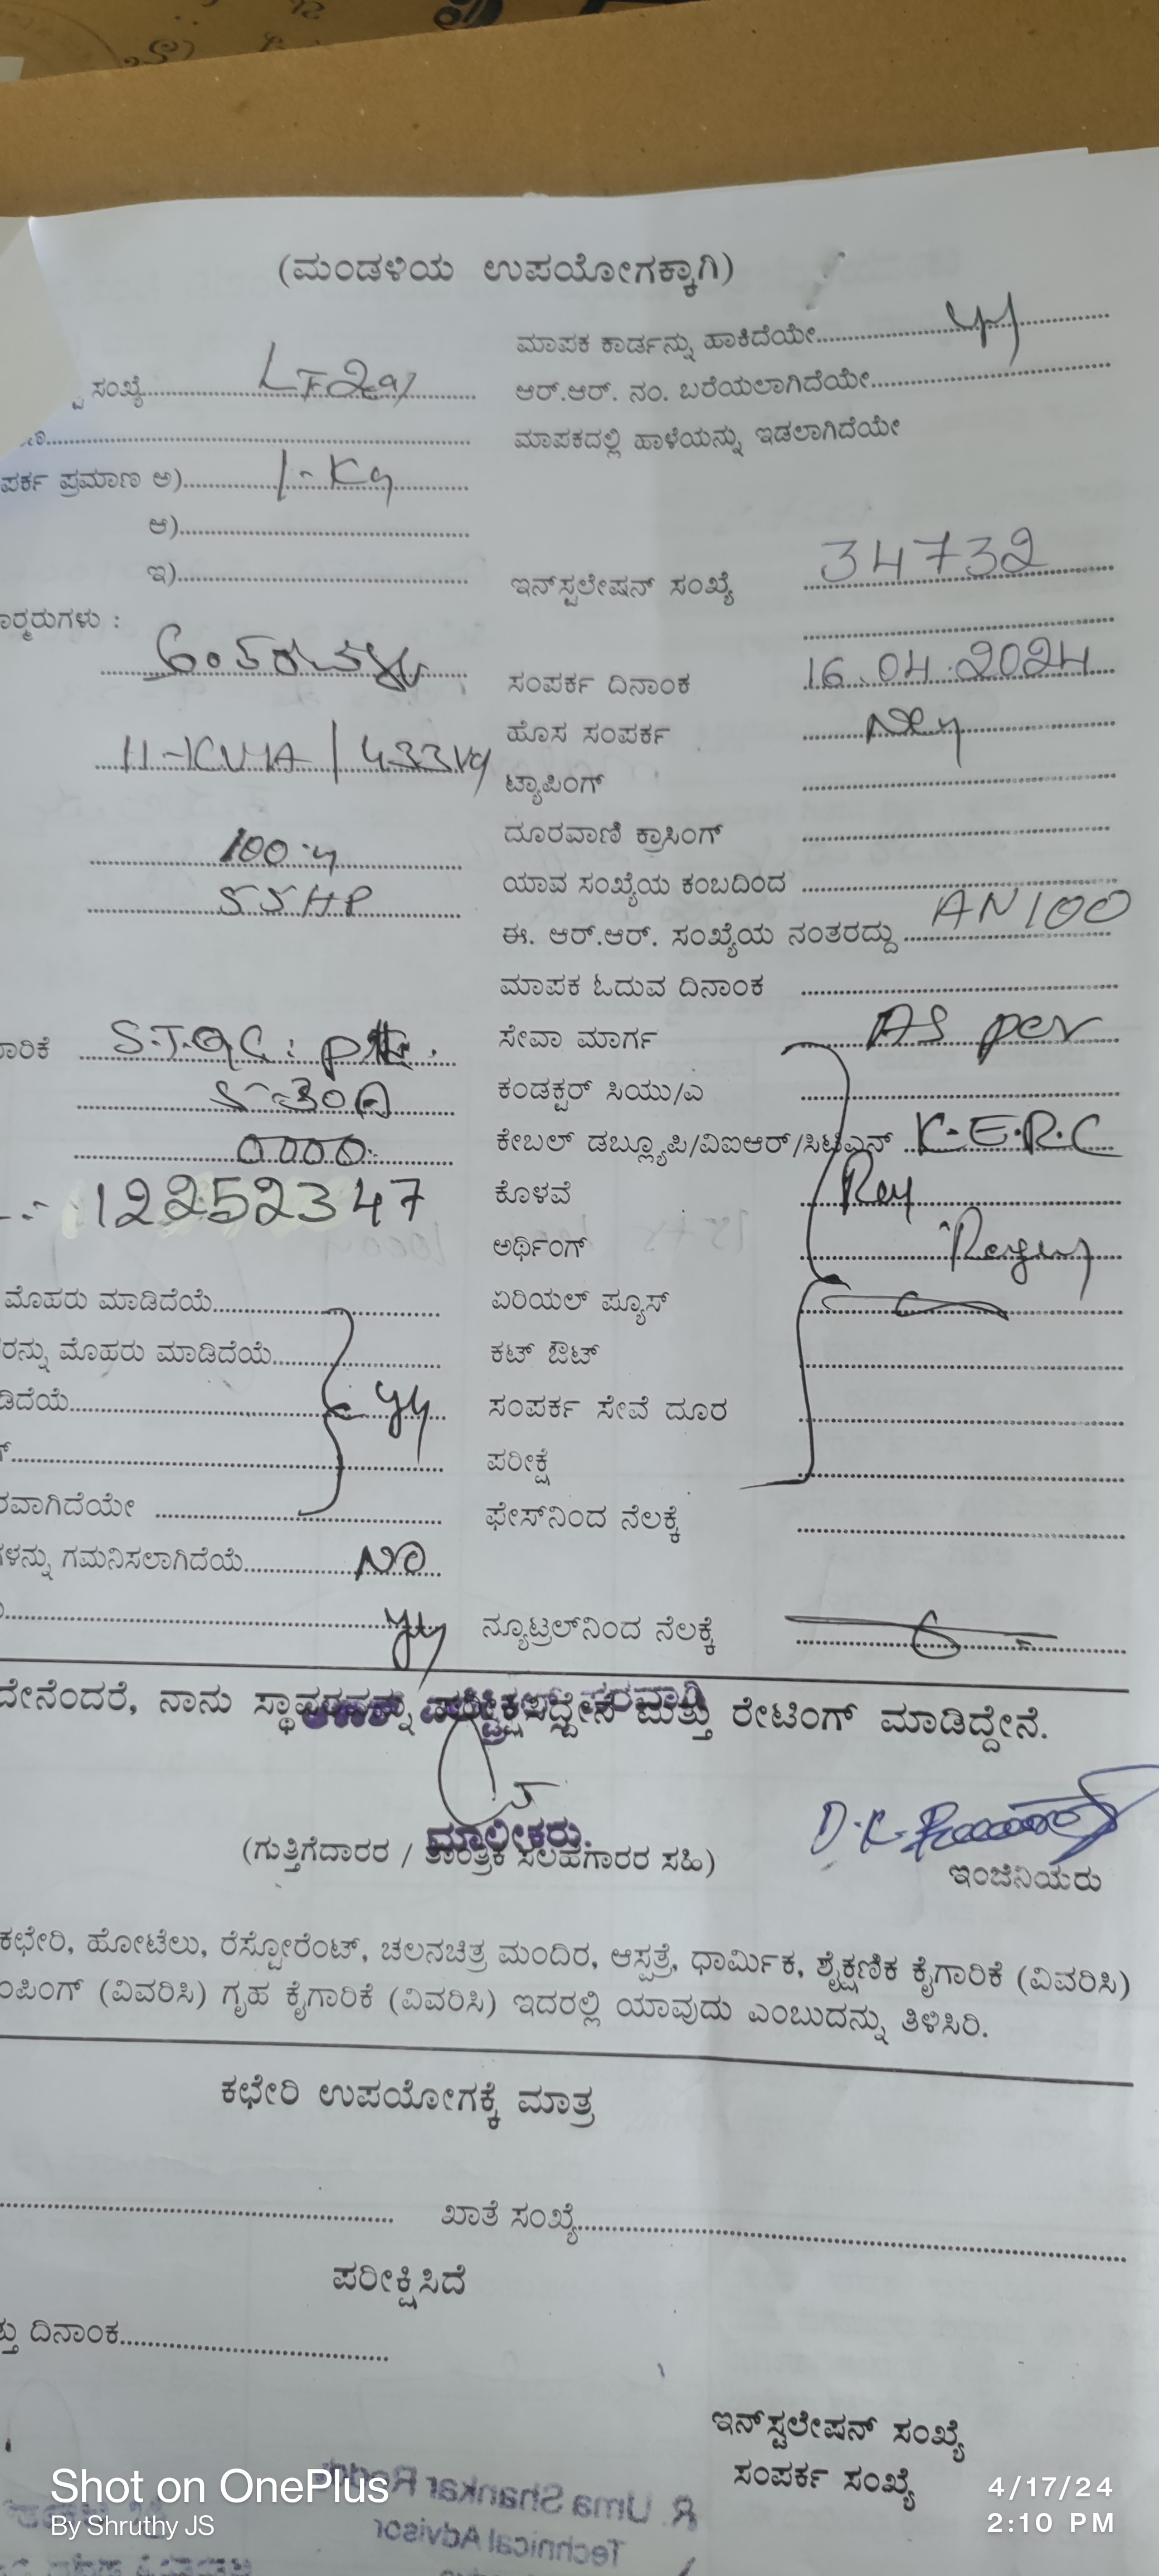 (ಮಂಡಳಿಯ ಉಪಯೋಗಕ್ಕಾಗಿ)
ಮಾಪಕ ಕಾರ್ಡನ್ನು ಹಾಕಿದೆಯೇ
ಸಂಖ್ಯೆ
ಆರ್.ಆರ್. ನಂ. ಬರೆಯಲಾಗಿದೆಯೇ
ಮಾಪಕದಲ್ಲಿ ಹಾಳೆಯನ್ನು ಇಡಲಾಗಿದೆಯೇ
ಪರ್ಕ ಪ್ರಮಾಣ ಅ)
ಆ)
ಇ)
ಇನ್‌ಸ್ಟಲೇಷನ್ ಸಂಖ್ಯೆ 34732
ಾರ್‍ಮರುಗಳು :
ಸಂಪರ್ಕ ದಿನಾಂಕ 16.04.2024
ಹೊಸ ಸಂಪರ್ಕ
ಟ್ಯಾಪಿಂಗ್
ದೂರವಾಣಿ ಕ್ರಾಸಿಂಗ್
100
ಯಾವ ಸಂಖ್ಯೆಯ ಕಂಬದಿಂದ
55HP
ಈ. ಆರ್.ಆರ್. ಸಂಖ್ಯೆಯ ನಂತರದ್ದು AN100
ಮಾಪಕ ಓದುವ ದಿನಾಂಕ
ಾರಿಕೆ
ಸೇವಾ ಮಾರ್ಗ As per
5-30A
ಕಂಡಕ್ಟರ್ ಸಿಯು/ಎ
0000
ಕೇಬಲ್ ಡಬ್ಲ್ಯೂಪಿ/ವಿಐಆರ್/ಸಿಟಿಎನ್ K.E.R.C
12252347
ಕೊಳವೆ
ಅರ್ಥಿಂಗ್
ಮೊಹರು ಮಾಡಿದೆಯೆ
ಏರಿಯಲ್ ಫ್ಯೂಸ್
ರನ್ನು ಮೊಹರು ಮಾಡಿದೆಯೆ
ಕಟ್ ಔಟ್
ಡಿದೆಯೆ
ಸಂಪರ್ಕ ಸೇವೆ ದೂರ
ಪರೀಕ್ಷೆ
ರವಾಗಿದೆಯೇ
ಫೇಸ್‌ನಿಂದ ನೆಲಕ್ಕೆ
ಳನ್ನು ಗಮನಿಸಲಾಗಿದೆಯೆ NO
ನ್ಯೂಟ್ರಲ್‌ನಿಂದ ನೆಲಕ್ಕೆ
ದೇನೆಂದರೆ, ನಾನು ಸ್ಥಾವರವನ್ನು ಪರೀಕ್ಷಿಸಿದ್ದೇನೆ ಮತ್ತು ರೇಟಿಂಗ್ ಮಾಡಿದ್ದೇನೆ.
ಮಾಲೀಕರು.
(ಗುತ್ತಿಗೆದಾರರ / ತಾಂತ್ರಿಕ ಸಲಹೆಗಾರರ ಸಹಿ)
ಇಂಜಿನಿಯರು
ಕಛೇರಿ, ಹೋಟೆಲು, ರೆಸ್ಟೋರೆಂಟ್, ಚಲನಚಿತ್ರ ಮಂದಿರ, ಆಸ್ಪತ್ರೆ, ಧಾರ್ಮಿಕ, ಶೈಕ್ಷಣಿಕ ಕೈಗಾರಿಕೆ (ವಿವರಿಸಿ)
ಂಪಿಂಗ್ (ವಿವರಿಸಿ) ಗೃಹ ಕೈಗಾರಿಕೆ (ವಿವರಿಸಿ) ಇದರಲ್ಲಿ ಯಾವುದು ಎಂಬುದನ್ನು ತಿಳಿಸಿರಿ.
ಕಛೇರಿ ಉಪಯೋಗಕ್ಕೆ ಮಾತ್ರ
ಖಾತೆ ಸಂಖ್ಯೆ
ಪರೀಕ್ಷಿಸಿದೆ
ತ್ತು ದಿನಾಂಕ
ಇನ್‌ಸ್ಟಲೇಷನ್ ಸಂಖ್ಯೆ
ಸಂಪರ್ಕ ಸಂಖ್ಯೆ
R. Uma Shankar Reddy
Technical Advisor
Shot on OnePlus
By Shruthy JS
4/17/24
2:10 PM